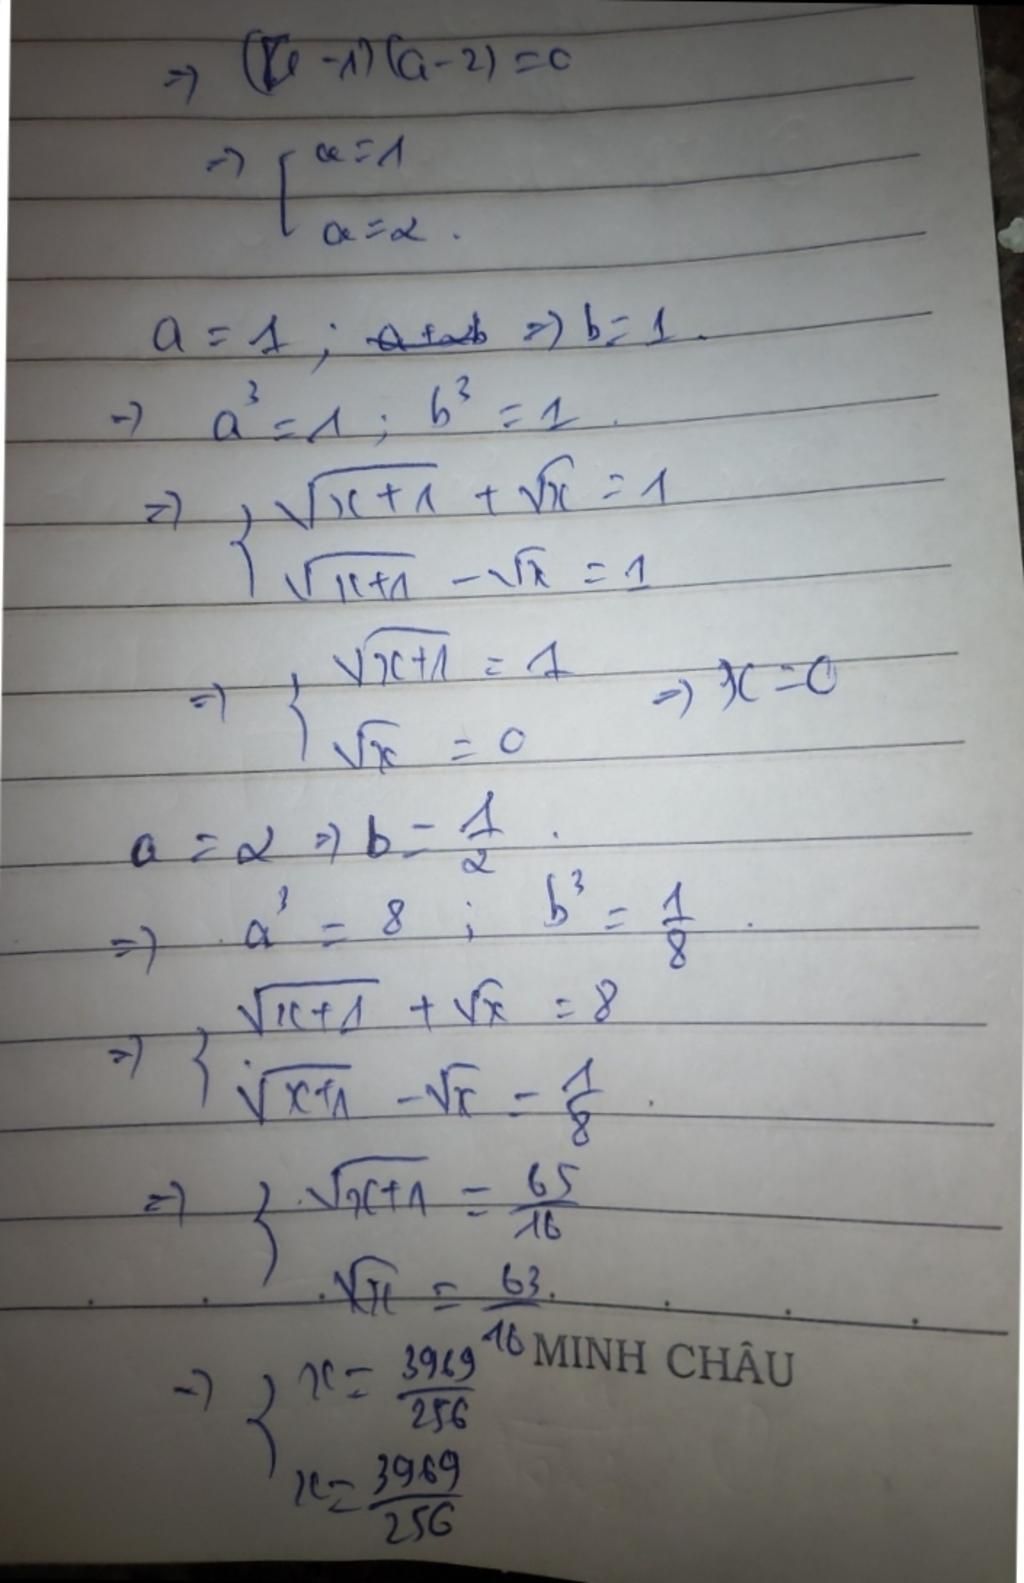 => (a - 1) (a - 2) = 0
=> [ a = 1
a = 2 .
a = 1 ; a + 2b => b = 1 .
=> a³ = 1 ; b³ = 1 .
=> { √(x+1) + √x = 1
√(x+1) - √x = 1
=> { √(x+1) = 1 => x = 0
√x = 0
a = 2 => b = 1/2 .
=> a³ = 8 ; b³ = 1/8 .
=> { √(x+1) + √x = 8
√(x+1) - √x = 1/8 .
=> { √(x+1) = 65/16
√x = 63/16 .
MINH CHÂU
=> { x = 3969/256
x = 3969/256